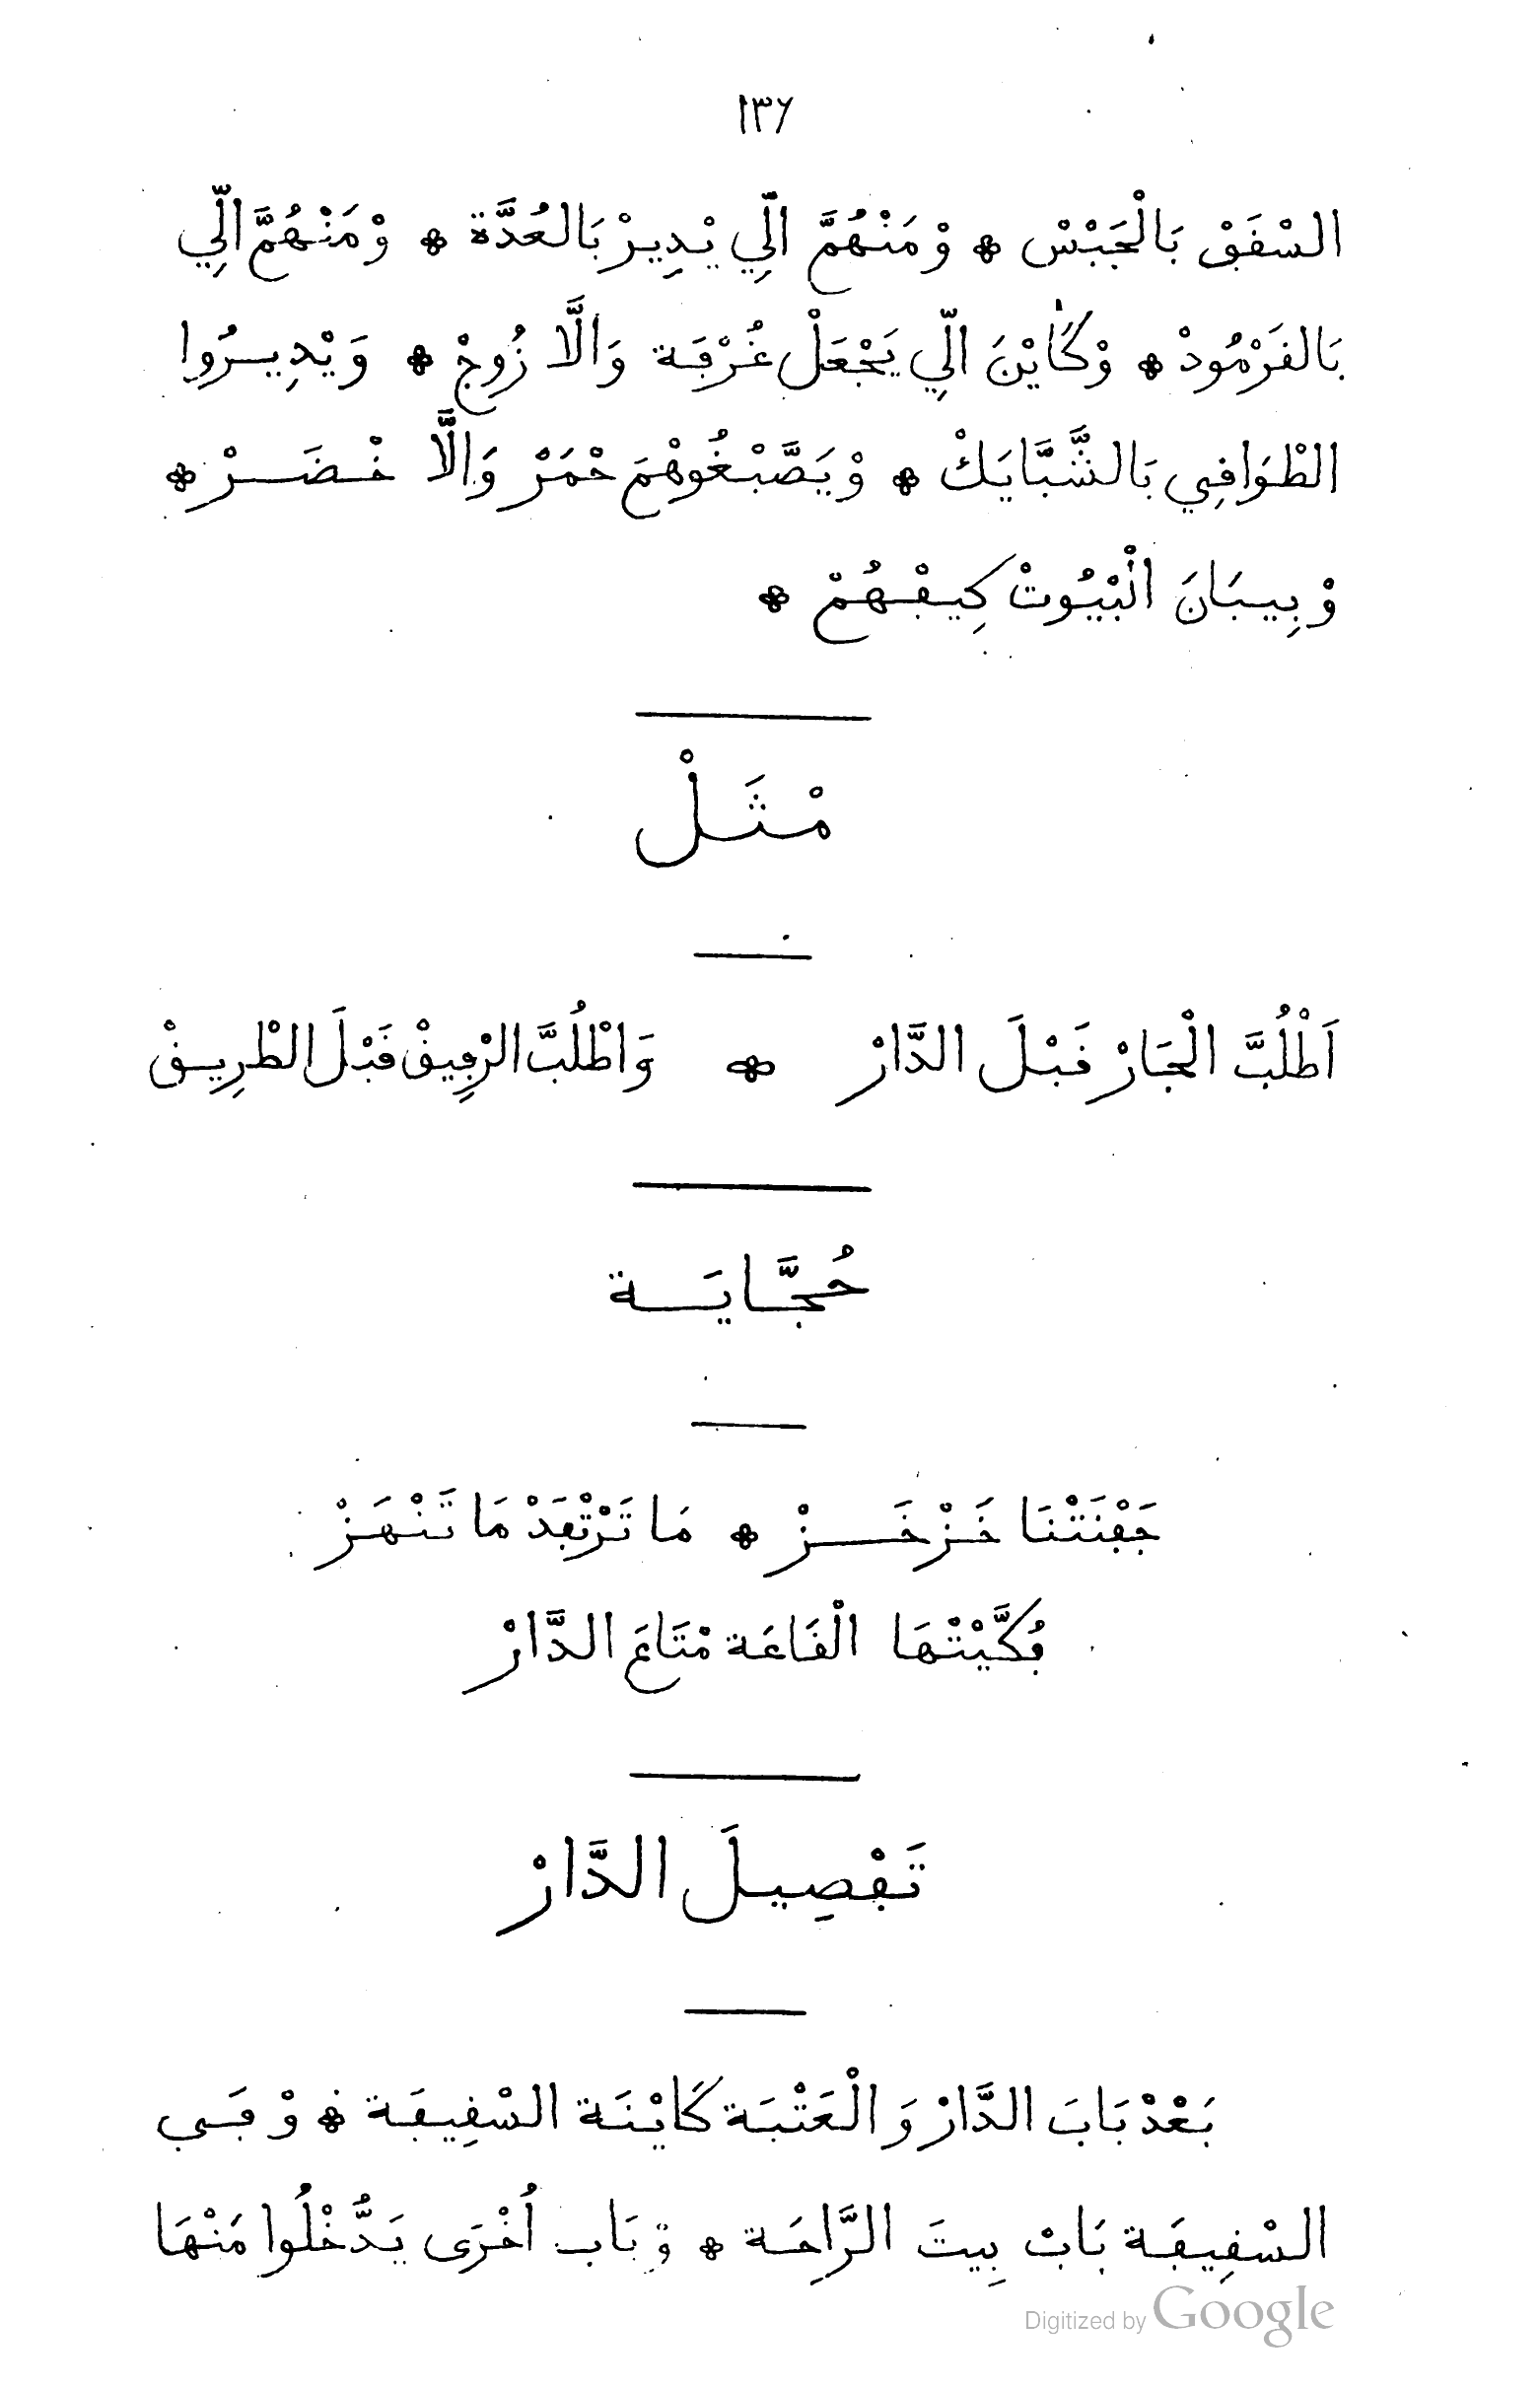 ١٣٦
السْقَفْ بَالْجَبْسْ * وْمَنْهُمَّ الِّي يْدِيرْ بَالعُدَّة * وْمَنْهُمَّ الِّي
بَالقَرْمُودْ * وْكَايْنَ الِّي يَجْعَلْ غُرْفَة وَالَّا زُوجْ * وَيْدِيرُوا
الطْوَاقِي بَالشَّبَّايَكْ * وْيَصَّبْغُوهْمَ حْمَرْ وَالَّا خْضَرْ *
وْبِيبَانَ الْبْيُوتْ كِيفْهُمْ *
مْثَلْ
اَطْلُبَّ الْجَارْ قَبْلَ الدَّارْ * وَاطْلُبَّ الرْفِيقْ قَبْلَ الطْرِيقْ
حُجَّايَة
جَفْنَتْنَا خَزْخَزْ * مَا تَرْتْفَدْ مَا تَنْهَزْ
فُكَّيْتْهَا الْقَاعَة مْتَاعَ الدَّارْ
تَفْصِيلَ الدَّارْ
بَعْدْ بَابَ الدَّارْ وَالْعَتْبَة كَايْنَة السْقِيفَة * وْفَي
السْقِيفَة بَابْ بِيتَ الرَّاحَة * وْبَاب أُخْرَى يَدُّخْلُوا مَنْهَا
Digitized by Google